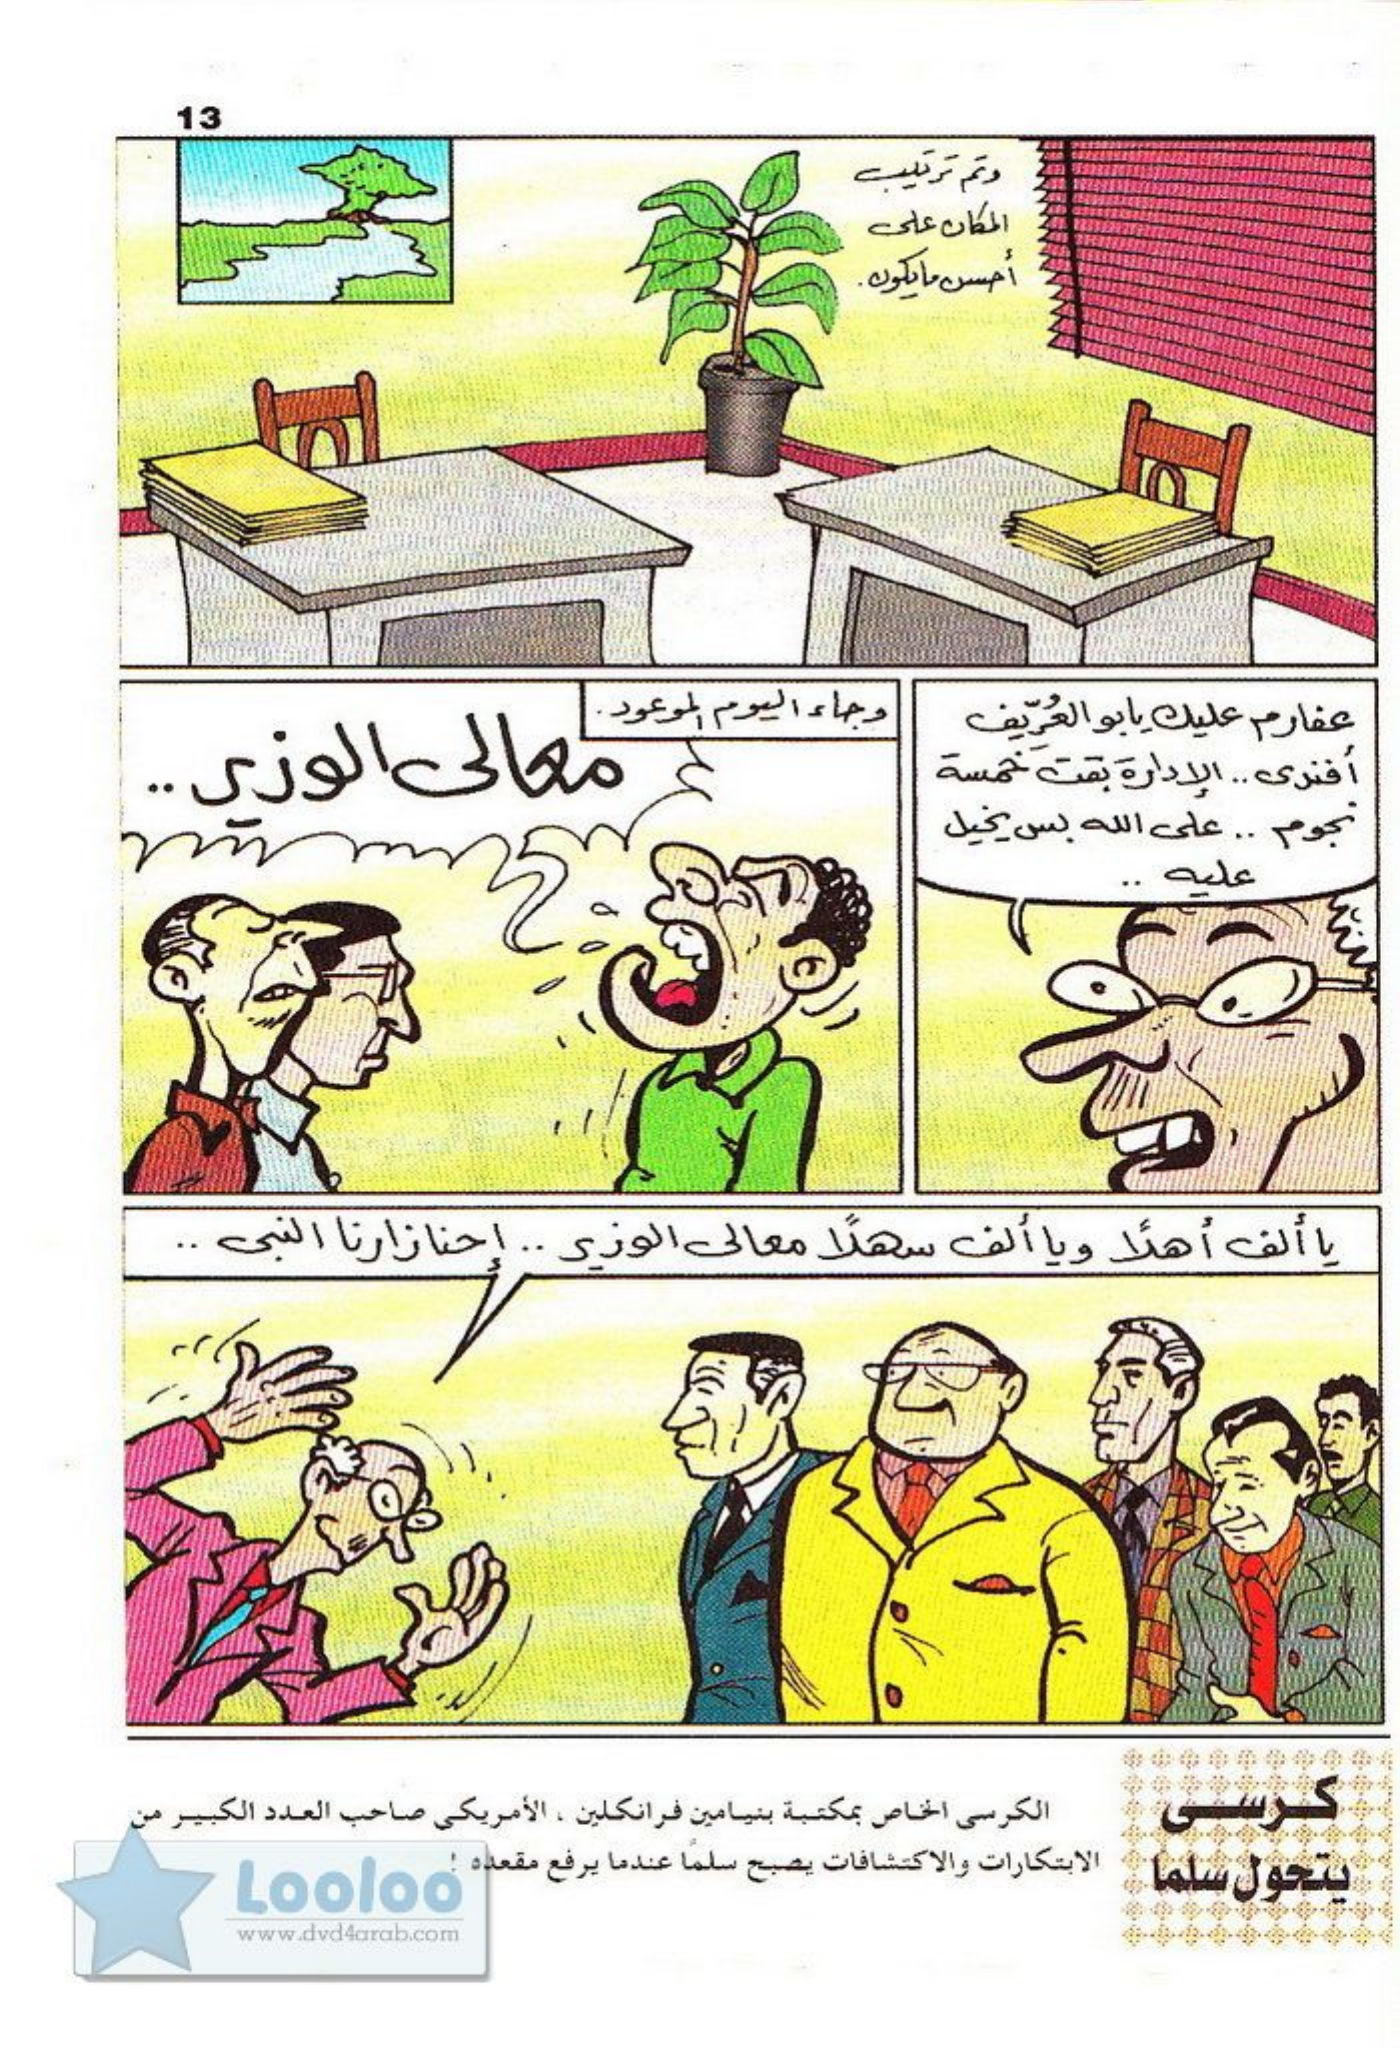 13
وتم ترتيب
المكان على
أحسن مايكون.
عفارم عليك يابو العُرِّيف
أفندى .. الإدارة بقت خمسة
نجوم .. على الله بس يخيل
عليه ..
وجاء اليوم الموعود.
معالى الوزير ..
يا ألف أهلًا ويا ألف سهلًا معالى الوزير .. إحنا زارنا النبى ..
كرسى
يتحول سلما
الكرسى الخاص بمكتبة بنيامين فرانكلين ، الأمريكى صاحب العدد الكبير من
الابتكارات والاكتشافات يصبح سلمًا عندما يرفع مقعده !
Looloo
www.dvd4arab.com